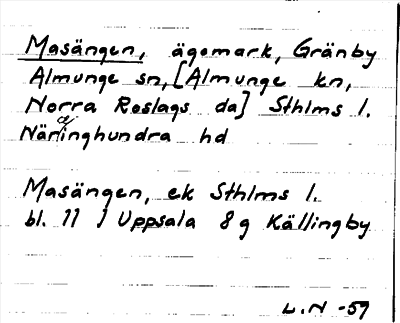 Masängen, ägomark, Gränby
Almunge sn, [Almunge kn,
Norra Roslags da] Sthlms l.
Närdinghundra hd
Masängen, ek Sthlms l.
bl. 11 I Uppsala 8g Källingby
L.N -57